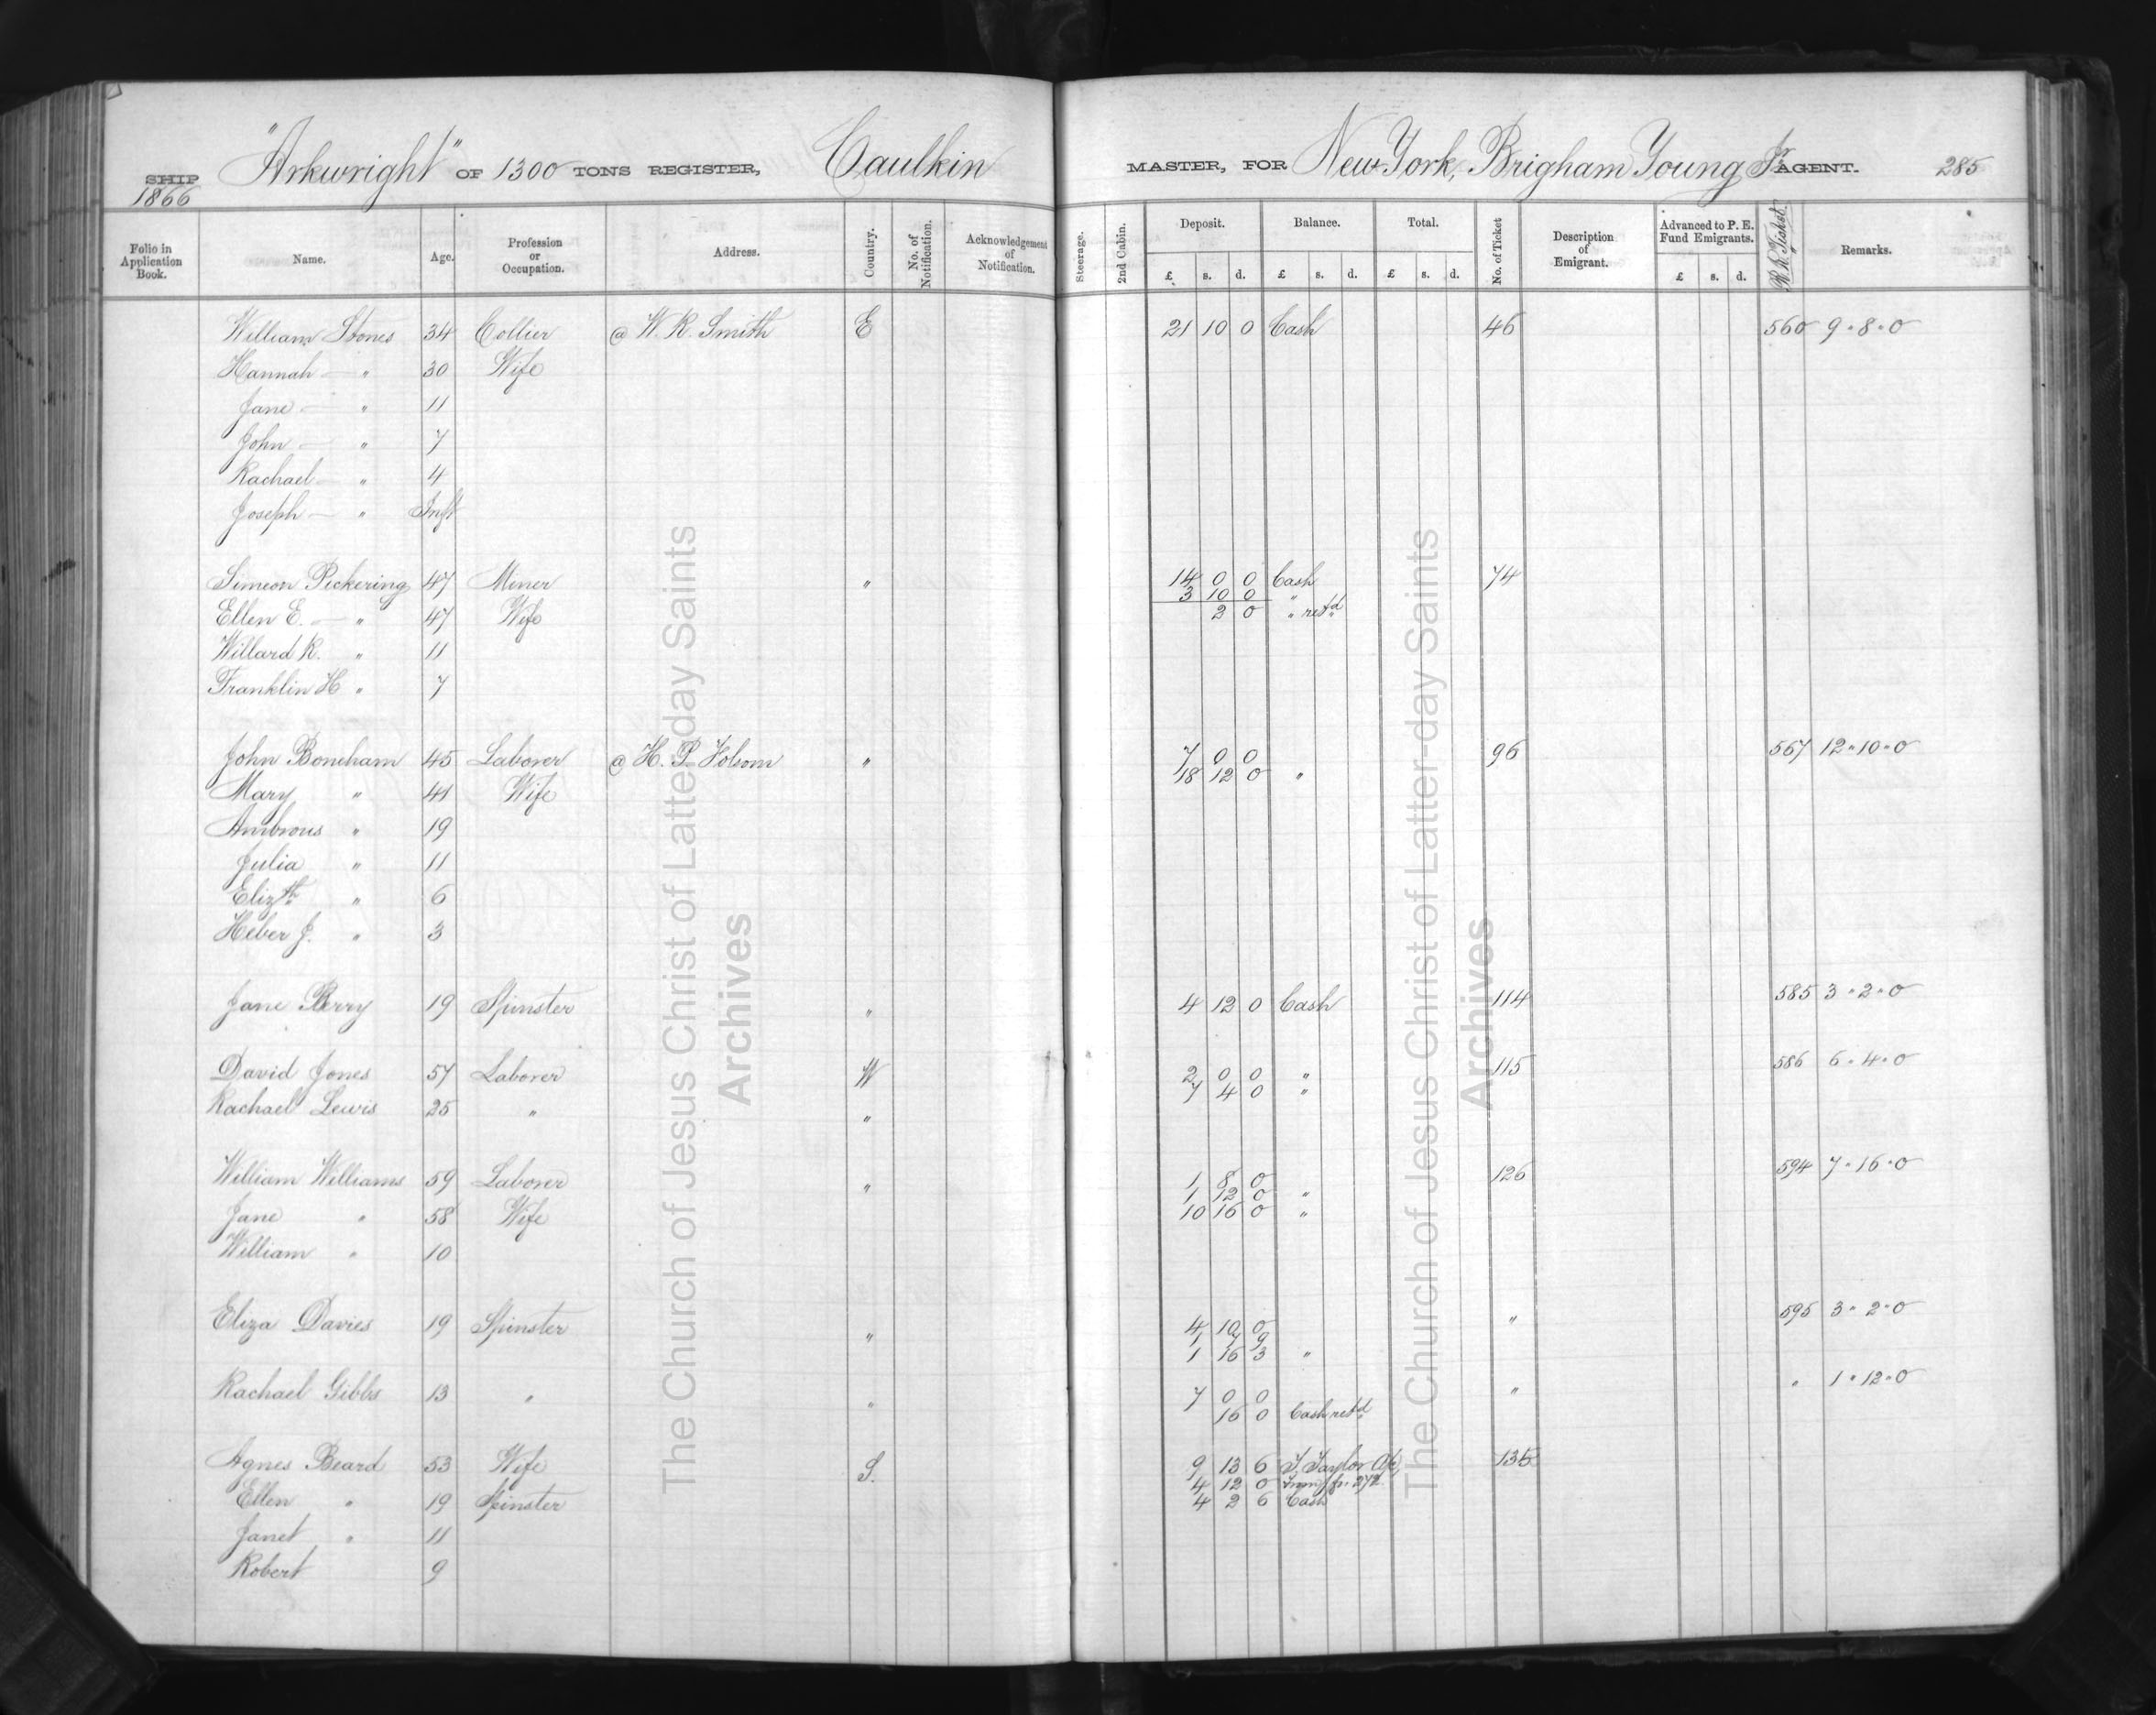 SHIP "Arkwright" OF 1300 TONS REGISTER, Caulkin MASTER, FOR New York, Brigham Young Jr AGENT. 285
1866
Folio in Application Book. Name. Age. Profession or Occupation. Address. Country. No. of Notification. Acknowledgement of Notification. Steerage. 2nd Cabin. Deposit. Balance. Total. No. of Ticket Description of Emigrant. Advanced to P. E. Fund Emigrants. R. R. Ticket. Remarks.
£ s. d. £ s. d. £ s. d. £ s. d.
William Stones 34 Collier @ W. R. Smith E 21 10 0 Cash 46 560 9 " 8 " 0
Hannah — " 30 Wife
Jane — " 11
John — " 7
Rachael — " 4
Joseph — " Inft
Simeon Pickering 47 Miner " 14 0 0 Cash 74
3 10 0 "
Ellen E. — " 47 Wife 2 0 " retd
Willard R. " 11
Franklin H " 7
John Boneham 45 Laborer @ H. P. Folsom " 7 0 0 96 567 12 " 10 " 0
18 12 0 "
Mary " 41 Wife
Ambrous " 19
Julia " 11
Elizth " 6
Heber J. " 3
Jane Berry 19 Spinster " 4 12 0 Cash 114 585 3 " 2 " 0
David Jones 57 Laborer W 2 0 0 " 115 586 6 " 4 " 0
7 4 0 "
Rachael Lewis 25 " "
William Williams 59 Laborer " 1 8 0 126 594 7 " 16 " 0
1 12 0 "
Jane " 58 Wife 10 16 0 "
William " 10
Eliza Davies 19 Spinster " 4 10 0 " 595 3 " 2 " 0
1 7 9
1 16 3 "
Rachael Gibbs 13 " " 7 0 0 " " 1 " 12 " 0
16 0 Cash retd
Agnes Beard 53 Wife S. 9 13 6 T. Taylor 135
4 12 0 272
Ellen " 19 Spinster 4 2 6 Cash
Janet " 11
Robert 9
The Church of Jesus Christ of Latter-day Saints
Archives
The Church of Jesus Christ of Latter-day Saints
Archives